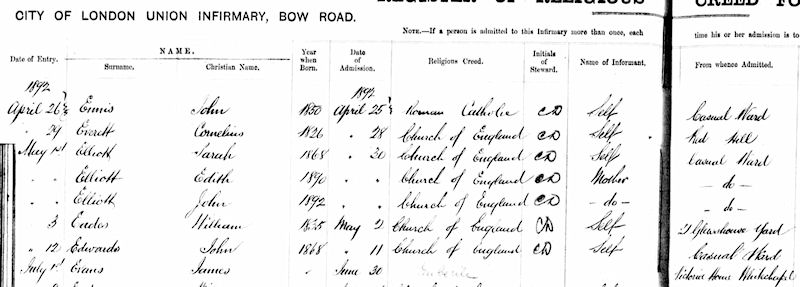 REGISTER OF RELIGIOUS CREED FO
CITY OF LONDON UNION INFIRMARY, BOW ROAD.
NOTE.—If a person is admitted to this Infirmary more than once, each time his or her admission is to
Date of Entry. NAME. Surname. Christian Name. Year when Born. Date of Admission. Religious Creed. Initials of Steward. Name of Informant. From whence Admitted.
1892 1892
April 26 Ennis John 1850 April 25 Roman Catholic CD Self Casual Ward
" 29 Everett Cornelius 1826 " 28 Church of England CD Self Hill
May 1st Elliott Sarah 1868 " 30 Church of England CD Self Casual Ward
" " Elliott Edith 1890 " " Church of England CD Mother - do -
" " Elliott John 1892 " " Church of England CD - do - - do -
" 3 Eades William May 2 Church of England CD Self Yard
" 12 Edwards John 1868 " 11 Church of England CD Self Casual Ward
July 1st Evans James " June 30 Victoria Home Whitechapel